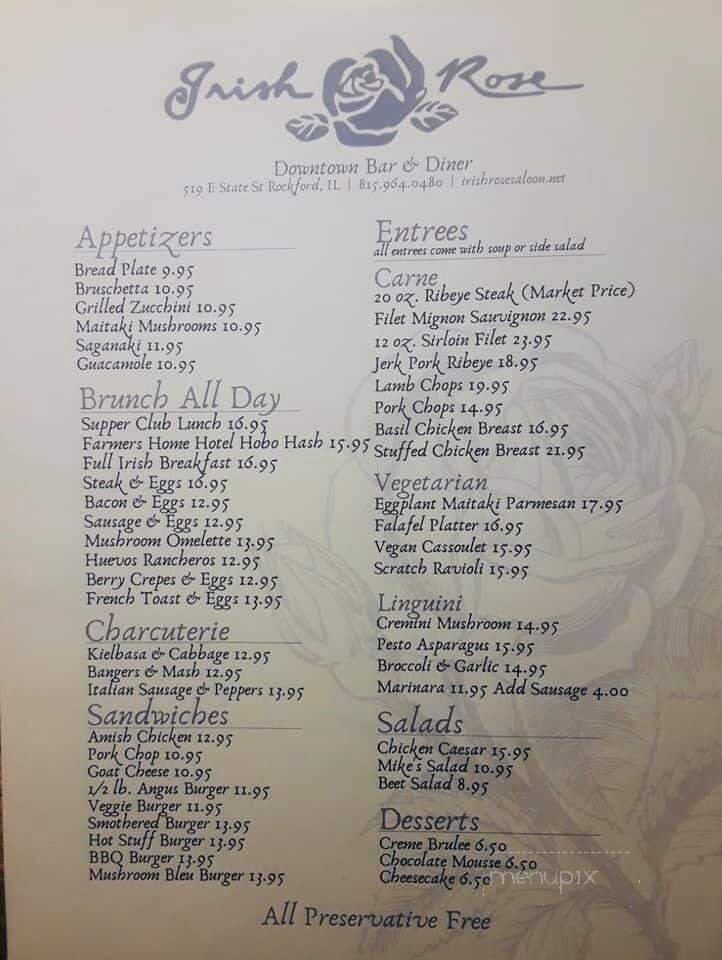 Irish Rose
Downtown Bar & Diner
519 E State St Rockford, IL | 815.964.0480 | irishrosesaloon.net
Appetizers
Bread Plate 9.95
Bruschetta 10.95
Grilled Zucchini 10.95
Maitaki Mushrooms 10.95
Saganaki 11.95
Guacamole 10.95
Brunch All Day
Supper Club Lunch 16.95
Farmers Home Hotel Hobo Hash 15.95
Full Irish Breakfast 16.95
Steak & Eggs 16.95
Bacon & Eggs 12.95
Sausage & Eggs 12.95
Mushroom Omelette 13.95
Huevos Rancheros 12.95
Berry Crepes & Eggs 12.95
French Toast & Eggs 13.95
Charcuterie
Kielbasa & Cabbage 12.95
Bangers & Mash 12.95
Italian Sausage & Peppers 13.95
Sandwiches
Amish Chicken 12.95
Pork Chop 10.95
Goat Cheese 10.95
1/2 lb. Angus Burger 11.95
Veggie Burger 11.95
Smothered Burger 13.95
Hot Stuff Burger 13.95
BBQ Burger 13.95
Mushroom Bleu Burger 13.95
Entrees
all entrees come with soup or side salad
Carne
20 oz. Ribeye Steak (Market Price)
Filet Mignon Sauvignon 22.95
12 oz. Sirloin Filet 23.95
Jerk Pork Ribeye 18.95
Lamb Chops 19.95
Pork Chops 14.95
Basil Chicken Breast 16.95
Stuffed Chicken Breast 21.95
Vegetarian
Eggplant Maitaki Parmesan 17.95
Falafel Platter 16.95
Vegan Cassoulet 15.95
Scratch Ravioli 15.95
Linguini
Cremini Mushroom 14.95
Pesto Asparagus 15.95
Broccoli & Garlic 14.95
Marinara 11.95 Add Sausage 4.00
Salads
Chicken Caesar 15.95
Mike's Salad 10.95
Beet Salad 8.95
Desserts
Creme Brulee 6.50
Chocolate Mousse 6.50
Cheesecake 6.50
menupix
All Preservative Free